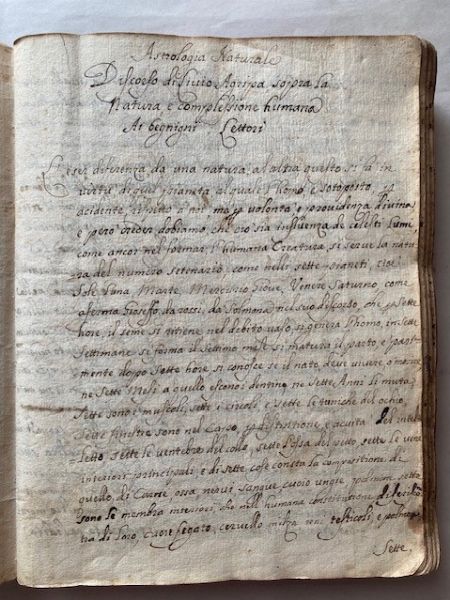 Astrologia Naturale
Discorso di Livio Agripa sopra la
Natura e complessione humana
Ai begnigni Lettori
Esser diferenza da una natura al altra questo si fà in
virtù di quel pianeta al quale l'homo è sotoposto, p
acidente, rispetto à noi mà p volontà e providenza divina
e però creder dobiamo, che ciò sia influenza de celesti Lumi
come ancor nel formar l'humana Creatura si serve la natu
ra del numero setenario, come nelli sette pianeti, cioè
Sole Luna Marte Mercurio Giove, Venere Saturno, come
aferma Gioseffo da rossi, da Solmona nel suo discorso, che p Sette
hore, il seme si ritiene nel debito vaso, si genera l'homo, in sette
Settimane si forma il settimo mese si matura il parto e parì
mente dopo Sette hore si conosce se il nato deve vivere, o morire
ne Sette Mesi a quello escono i dentin, ne Sette Anni li muta
Sette sono i muscoli, sette i circoli, e sette le tuniche del ochio,
Sette finestre sono nel Capo, p distintione, e acuità del intel
letto Sette le vertebre del collo, sette l'ossa del petto, sette le vene
interiori principali, e di sette cose consta la compositione di
quello, di Carne, ossa nervi sangue, cuoio ungie, pali
sono le membra interiori, che nell'humana constitutione
tra di loro, cuore fegato, cervello milza reni testicoli, e polmone
Sette.